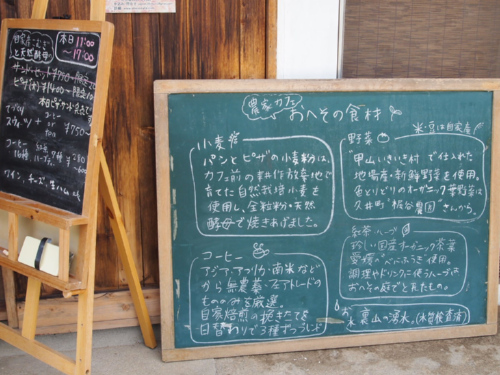 自家産こむぎ
と天然酵母
本日 11:00
〜17:00
サンドセット
ピザ
本日
コーヒー
ワイン、チーズ、生ハム
農家カフェ
おへその食材
小麦粉
パンとピザの小麦粉は、
カフェ前の耕作放棄地で
育てた自然栽培小麦を
使用し、全粒粉・天然
酵母で焼きあげました。
コーヒー
アジア・アフリカ・南米など
から無農薬・フェアトレードの
もののみを厳選。
自家焙煎の挽きたてを
日替わりで3種ずつブレンド
米・豆は自家産!
野菜
"甲山いきいき村"で仕入れた
地場産・新鮮野菜を使用。
色とりどりのオーガニック葉野菜は
久井町"板谷農園"さんから。
紅茶・ハーブ
珍しい国産オーガニック茶葉
愛媛の"べにふうき"使用。
調理やドリンクに使うハーブは
おへその庭でとれたもの。
お水 裏山の湧水。(水質検査済)